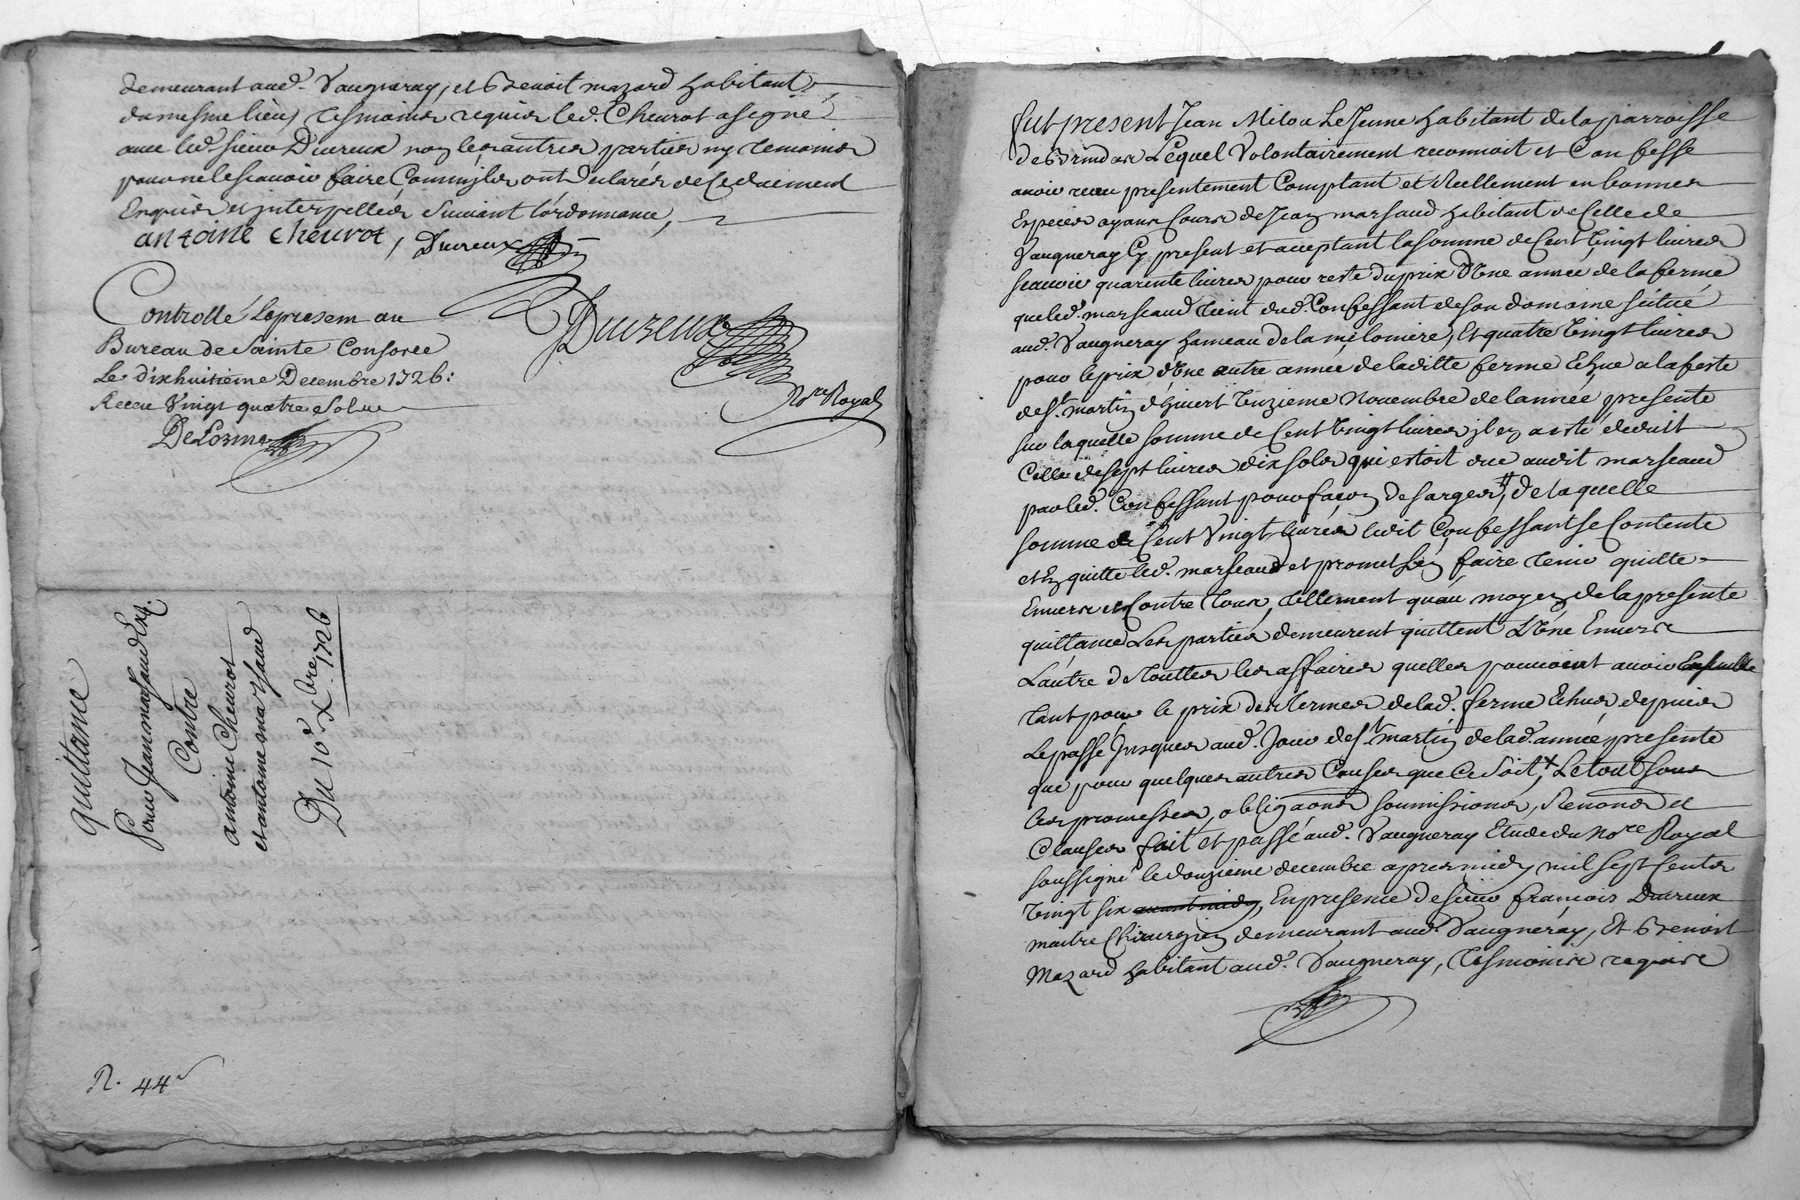 demeurant aud. Vaugneray, et Benoit mazard habitant
du mesme lieu, tesmoins requis led. Cheurot a signé
avec led. sieur Dureux non les autres parties ny temoins
pour ne le scavoir faire Comm'ils ont declarés de ce duement
Enquis et interpellés suivant l'ordonnance,
antoine cheurot, Dureux
Controllé le present au
Bureau de Sainte Consorce
Le dixhuitieme Decembre 1726:
Receu Vingt quatre sols
DeLorme
Dureux
No.re Royal
quittance
Pour Jean marsaud
Contre
antoine Cheurot
et antoine marsaud
Du 10e xbre 1726
R. 44
fut present Jean Milou Le Jeune habitant de la parroisse
de Brindas Lequel Volontairement reconnoit et Confesse
avoir receu presentement Comptant et Reellement en bonnes
Especes ayant Cours de Jean marsaud habitant de Celle de
Vaugneray Cy present et acceptant la somme de Cent Vingt livres
scavoir quarente livres pour reste du prix d'Une année de la ferme
que led. marseaud tient dud. Confessant de son domaine situé
aud. Vaugneray hameau de la milonière, Et quatre Vingt livres
pour le prix d'Une autre année de laditte ferme Echue a la feste
de st. martin d'hivert Unzieme Novembre de l'année presente
sur laquelle somme de Cent Vingt livres il en a esté deduit
Celle de sept livres dix sols qui estoit due audit marseaud
par led. Confessant pour façon de sarges ‡, de laquelle
somme de Cent Vingt livres ledit Confessant se Contente
et En quitte led. marseaud et promet L'en faire tenir quitte
Envers et Contre tous, tellement qu'au moyen de la presente
quittance Les parties demeurent quittent L'Une Envers
L'autre de touttes les affaires quelles pouvoient avoir Ensemble
tant pour le prix des termes de lad. ferme Echus depuis
Le passé Jusques aud. Jour de st. martin de lad. année presente
que pour quelques autres Causes que Ce soit, + Le tout sous
les promesses, obligaons soumissions, Renons et
Clauses fait et passé aud. Vaugneray Etude du No.re Royal
soussigné le douzieme decembre apres midy mil sept Cents
Vingt six avant midy, En presence de sieur francois Dureux
maitre Chirurgien demeurant aud. Vaugneray, Et Benoit
Mazard habitant aud. Vaugneray, tesmoins requis